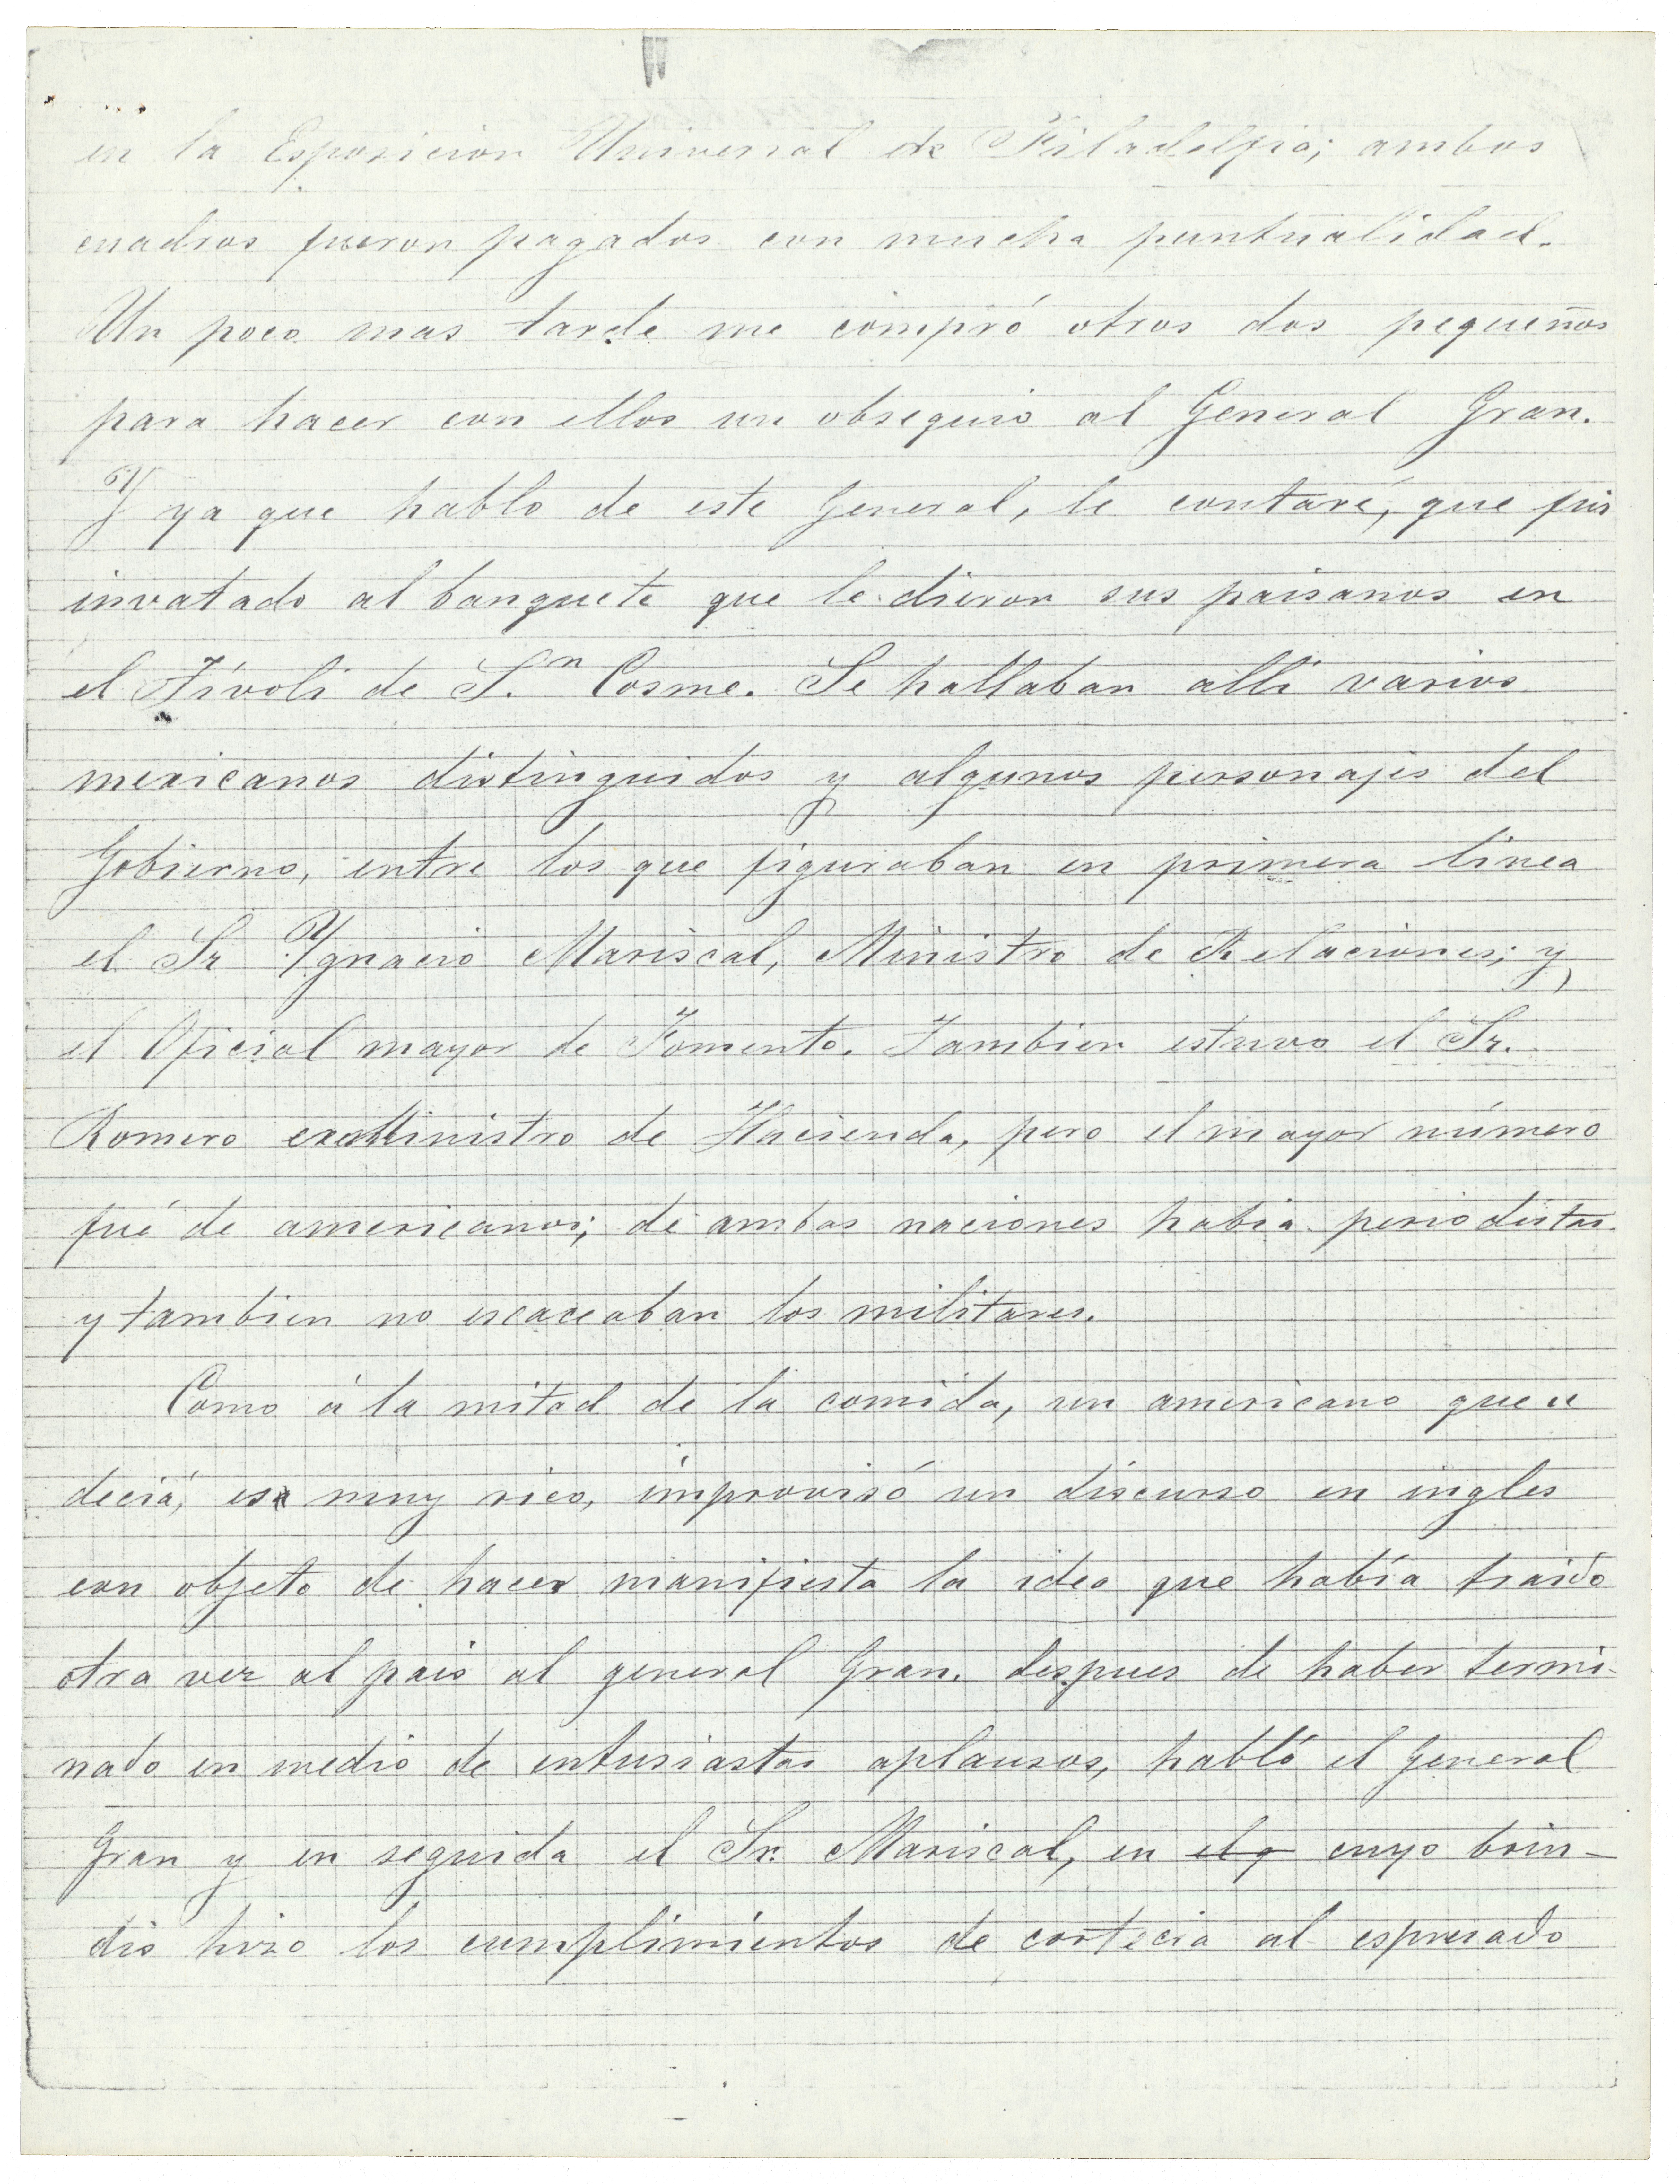 en la Esposicion Universal de Filadelfia; ambos
cuadros fueron pagados con mucha puntualidad.
Un poco mas tarde me compró otros dos pequeños
para hacer con ellos un obsequio al General Gran.
Y ya que hablo de este General, le contaré, que fui
invatado al banquete que le dieron sus paisanos en
el Tívoli de S.n Cosme. Se hallaban allí varios
mexicanos distinguidos y algunos personajes del
Gobierno, entre los que figuraban en primera linea
el Sr Ygnacio Mariscal, Ministro de Relaciones; y
el Oficial mayor de Fomento. Tambien estuvo el Sr.
Romero exMinistro de Hacienda, pero el mayor número
fué de americanos; de ambas naciones habia periodistas
y tambien no escaceaban los militares.
Como á la mitad de la comida, un americano que se
decía, es muy rico, improvisó un discurso en ingles
con objeto de hacer manifiesta la idea que había traido
otra vez al pais al general Gran. despues de haber termi-
nado en medio de entusiastas aplausos, habló el General
Gran y en seguida el Sr. Mariscal, en el q cuyo brin-
dis hizo los cumplimientos de cortecia al espresado